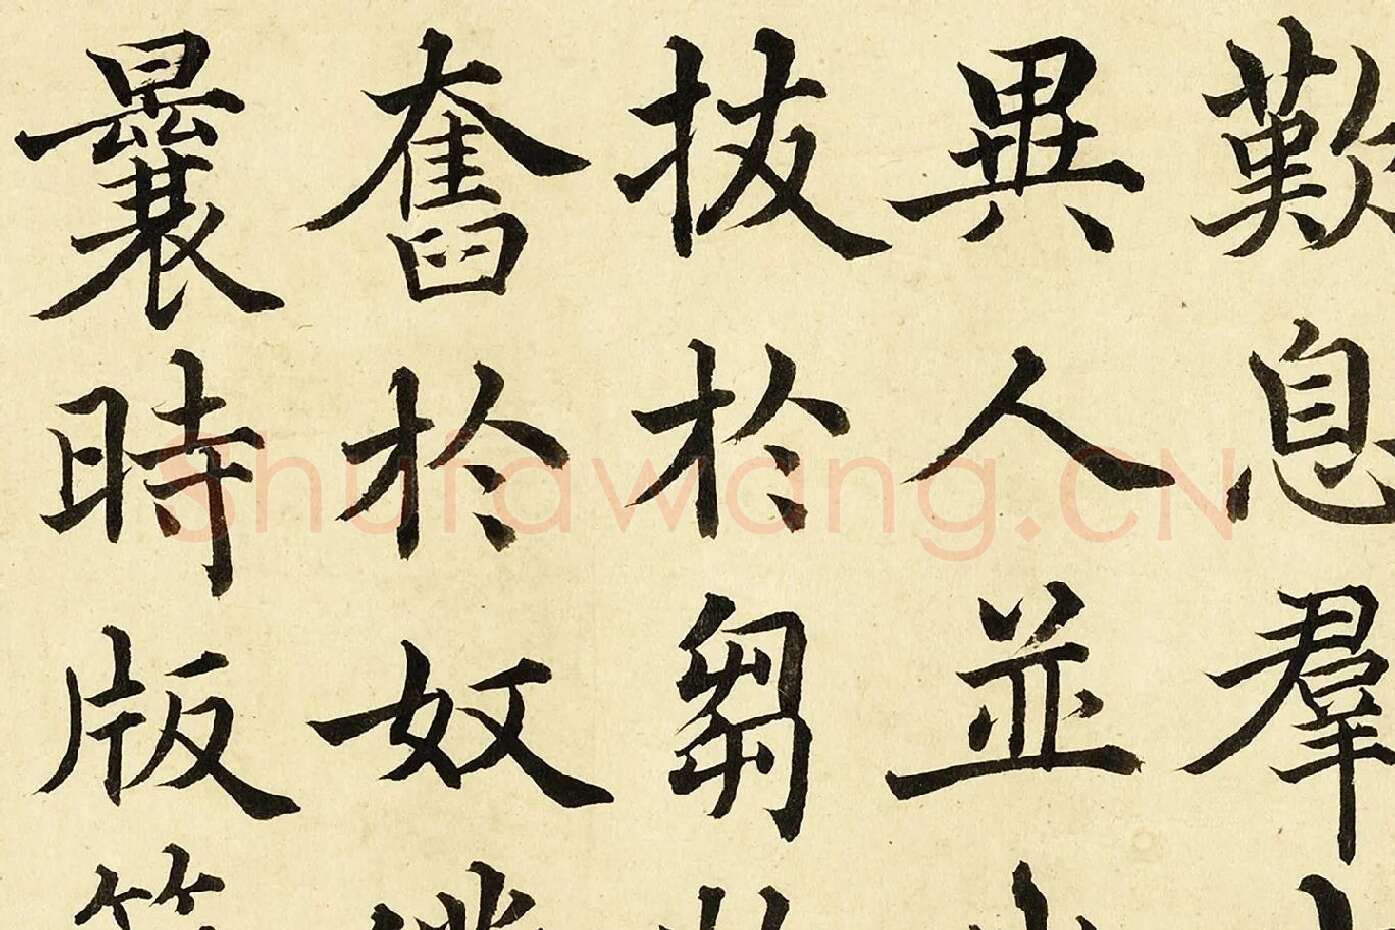 歎息羣
異人並
拔於芻
奮於奴
曩時版
Shufawang.CN